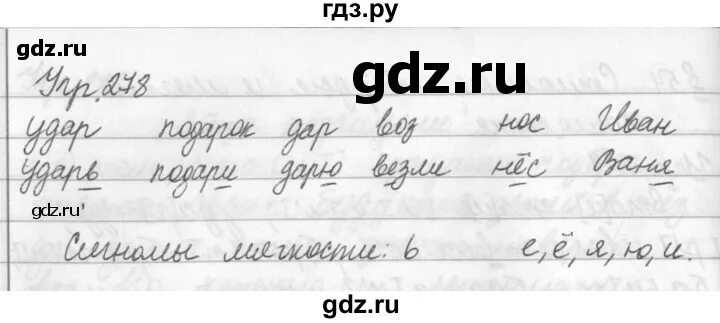 гдз.ру
gdz.ru
gdz.ru
Упр. 278
удар подарок дар воз нос Иван
ударь подари дарю везли нёс Ваня
gdz.ru
Сигналы мягкости: ь е, ё, я, ю, и.
gdz.ru